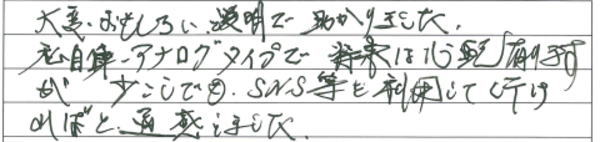 大変、おもしろい、説明で助かりました。
私自身、アナログタイプで将来は心配有ります
が少こしでも、SNS等を利用して行け
ればと、通感しました。